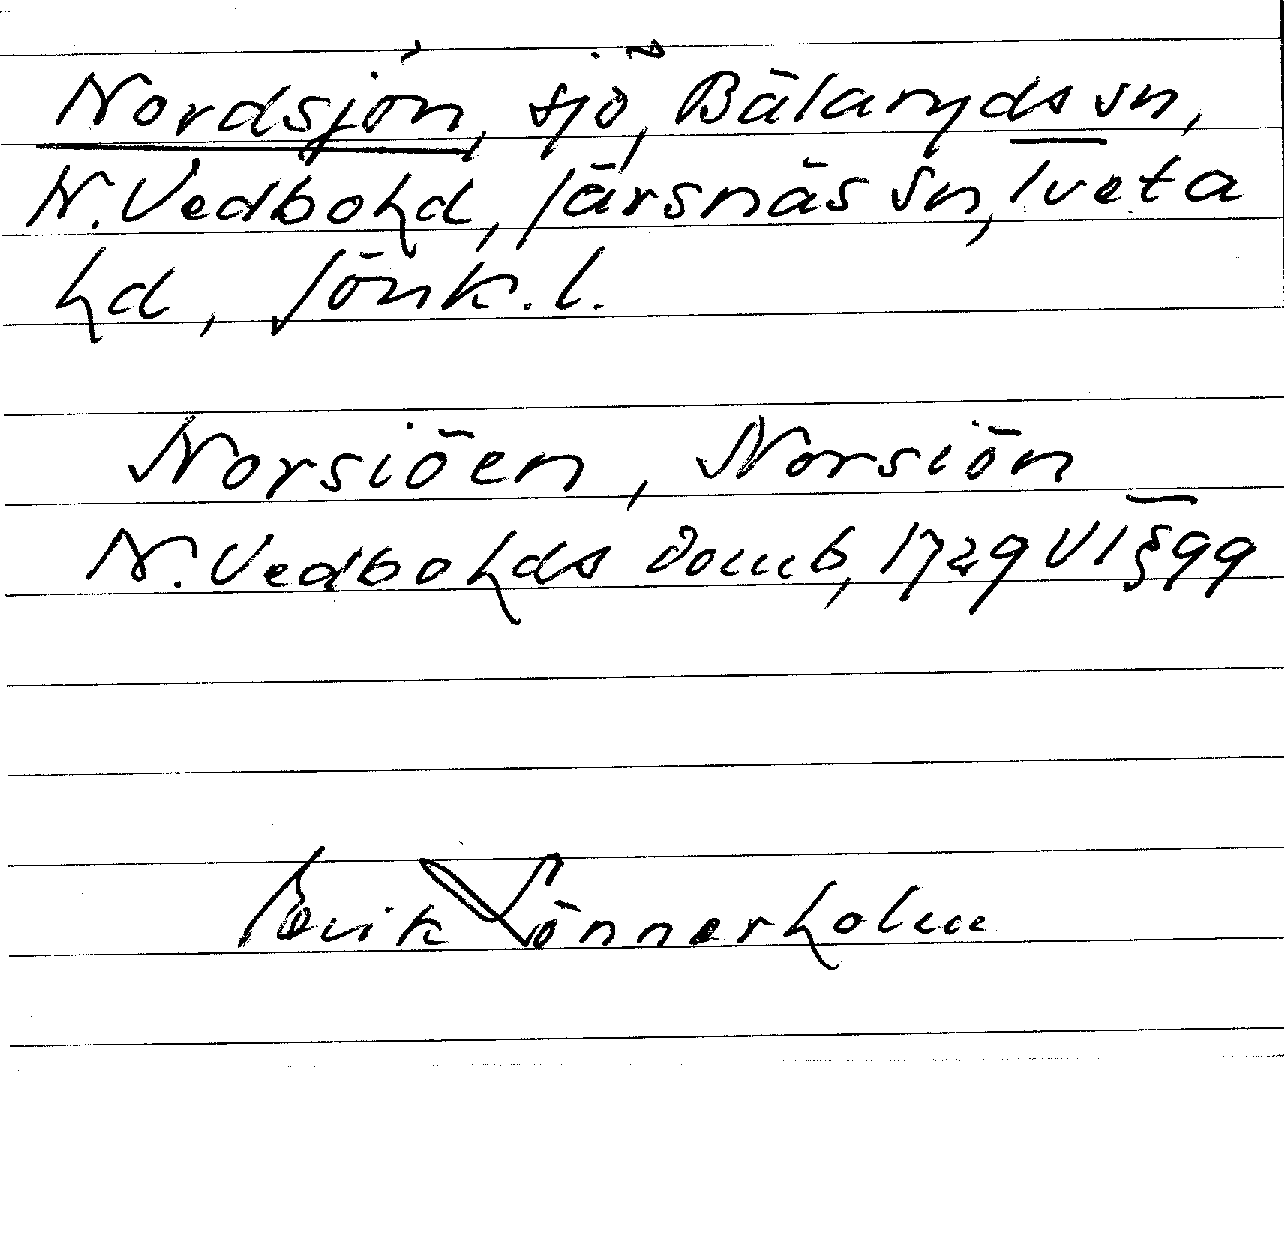 Nordsjön, sjö, Bälaryds sn,
N. Vedbo hd, Järsnäs sn, Tveta
hd, Jönk. l.
Norsiöen, Norsiön
N. Vedbo hds domb, 1729 VT § 99
Erik Lönnerholm